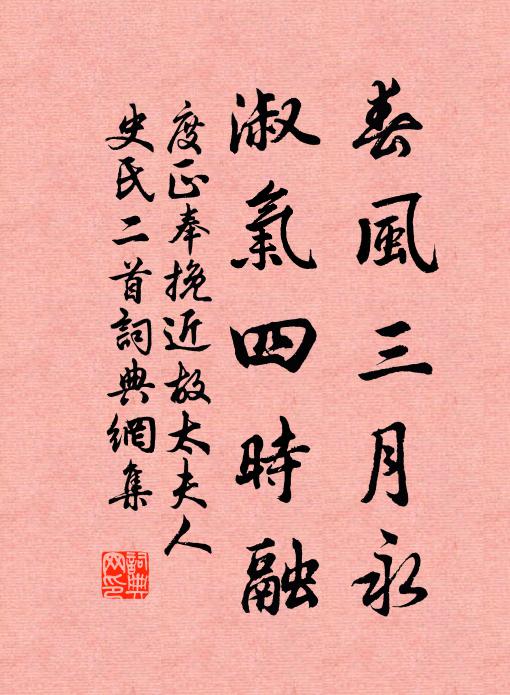 春風三月永
淑氣四時融
度正奉挽近故太夫人
史氏二首詞典網集
詞典
网印